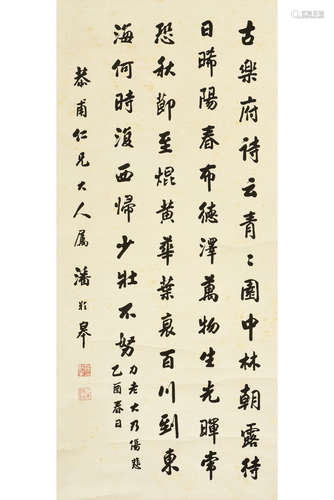 古樂府詩云青〻園中林朝露待
日晞陽春布德澤萬物生光暉常
恐秋節至焜黃華葉衰百川到東
海何時復西歸少壯不努
力老大乃傷悲
乙酉春日
恭甫仁兄大人屬 潘齡皋